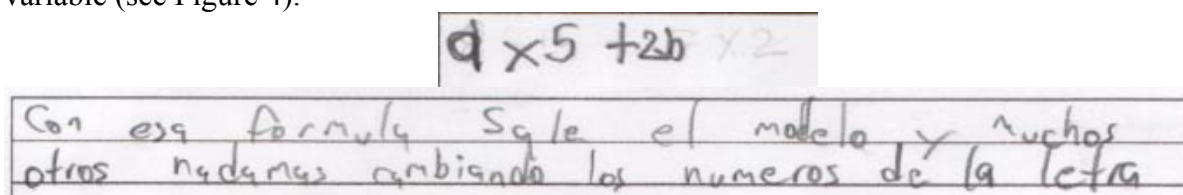 variable (see Figure 4).
a x5 +2b x2
Con esa formula Sale el modelo y muchos
otros nadamas cambiando los numeros de la letra